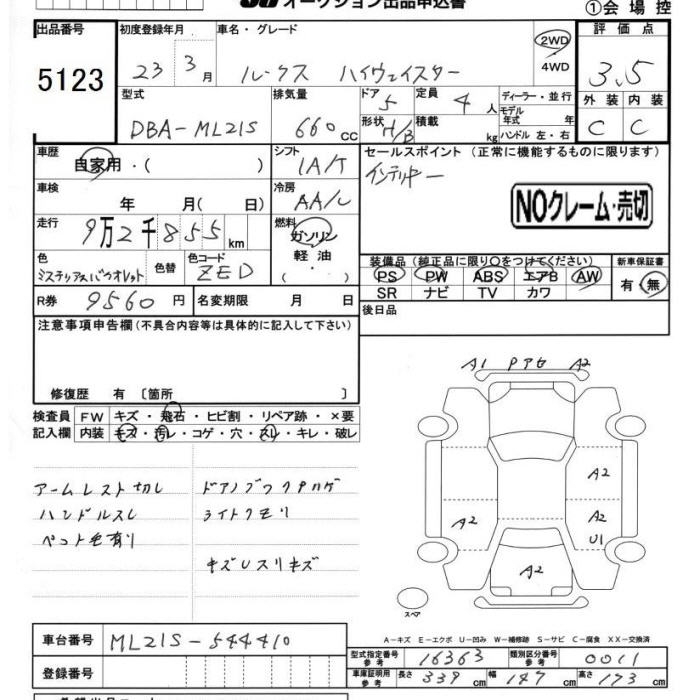 オークション出品申込書
①会場控
出品番号
5123
初度登録年月
23 3月
車名・グレード
ルークス ハイウェイスター
2WD
・
4WD
評価点
3.5
型式
DBA-ML21S
排気量
660cc
ドア
5
定員
4人
形状
H/B
積載
kg
ディーラー・並行
モデル
年式 年
ハンドル 左・右
外装 内装
C C
車歴
自家用・( )
シフト
IA/T
セールスポイント (正常に機能するものに限ります)
インテリキー
NOクレーム・売切
車検
年 月( 日)
冷房
AA/C
走行
9万2千855km
燃料
ガソリン
軽油
( ・ )
色
ミステリアスバイオレット
色替
色コード
ZED
装備品 (純正品に限り○をつけてください)
PS PW ABS エアB AW
SR ナビ TV カワ
新車保証書
有・無
R券 9560円
名変期限 月 日
後日品
注意事項申告欄(不具合内容等は具体的に記入して下さい)
修復歴 有〔箇所 〕
検査員
記入欄
FW キズ・飛石・ヒビ割・リペア跡・×要
内装 キズ・汚レ・コゲ・穴・スレ・キレ・破レ
アームレスト切レ
ドアノブウクレハゲ
ハンドルスレ
ライトクモリ
ペット毛有り
キズUスリキズ
A1 Pアセ A2
A2
A2
A2
U1
A2
スペア
A-キズ E-エクボ U-凹み W-補修跡 S-サビ C-腐食 XX-交換済
車台番号 ML21S-544410
登録番号
型式指定番号
参考
16363
類別区分番号
参考
0011
車庫証明用
参考
長さ 339cm
幅 147cm
高さ 173cm